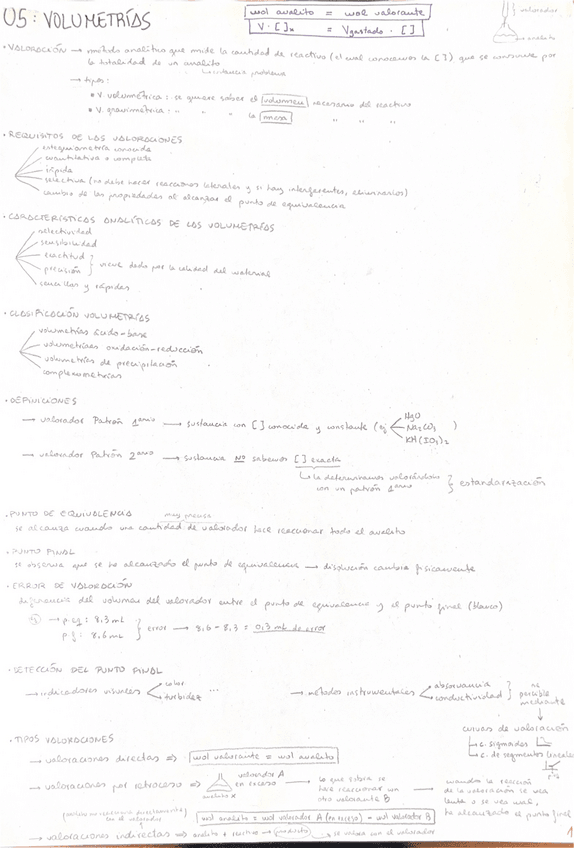 U5: VOLUMETRÍAS
mol analito = mol valorante
V · [ ]x = Vgastado · [ ]
valorador
analito
· VALORACIÓN → método analítico que mide la cantidad de reactivo (el cual conocemos la [ ]) que se consume por
la totalidad de un analito
sustancia problema
→ tipos:
* V. volumétrica: se quiere saber el volumen necesario del reactivo
* V. gravimétrica: " " " la masa " " "
· REQUISITOS DE LAS VALORACIONES
estequiometría conocida
cuantitativa o completa
rápida
selectiva (no debe haber reacciones laterales y si hay interferentes, eliminarlos)
cambio de las propiedades al alcanzar el punto de equivalencia
· CARACTERÍSTICAS ANALÍTICAS DE LAS VOLUMETRÍAS
selectividad
sensibilidad
exactitud
precisión } viene dado por la calidad del material
sencillas y rápidas
· CLASIFICACIÓN VOLUMETRÍAS
volumetrías ácido-base
volumetrías oxidación-reducción
volumetrías de precipitación
complexometrías
· DEFINICIONES
→ valorador Patrón 1ario → sustancia con [ ] conocida y constante (ej
HgO
Na2CO3
KH(IO3)2
)
→ valorador Patrón 2ario → sustancia NO sabemos [ ] exacta
la determinamos valorándolo
con un patrón 1ario } estandarización
· PUNTO DE EQUIVALENCIA
muy precisa
se alcanza cuando una cantidad de valorador hace reaccionar todo el analito
· PUNTO FINAL
se observa que se ha alcanzado el punto de equivalencia → disolución cambia físicamente
· ERROR DE VALORACIÓN
diferencia del volumen del valorador entre el punto de equivalencia y el punto final (blanco)
ej → p.eq: 8,3 mL
p.f: 8,6 mL } error → 8,6 - 8,3 = 0,3 mL de error
· DETECCIÓN DEL PUNTO FINAL
→ indicadores visuales
color
turbidez ...
→ métodos instrumentales
absorvancia
conductividad
es
posible
mediante
curvas de valoración
c. sigmoides
c. de segmentos lineales
· TIPOS VALORACIONES
→ valoraciones directas ⇒ mol valorante = mol analito
→ valoraciones por retroceso ⇒
valorador A
en exceso
analito x
→ lo que sobra se
hace reaccionar con
otro valorante B
→ cuando la reacción
de la valoración se vea
lenta o se vea mal,
ha alcanzado el punto final
en el valorador
mol analito = mol valorador A (en exceso) - mol valorador B
→ valoraciones indirectas ⇒ analito + reactivo → producto → se valora con el valorador
1